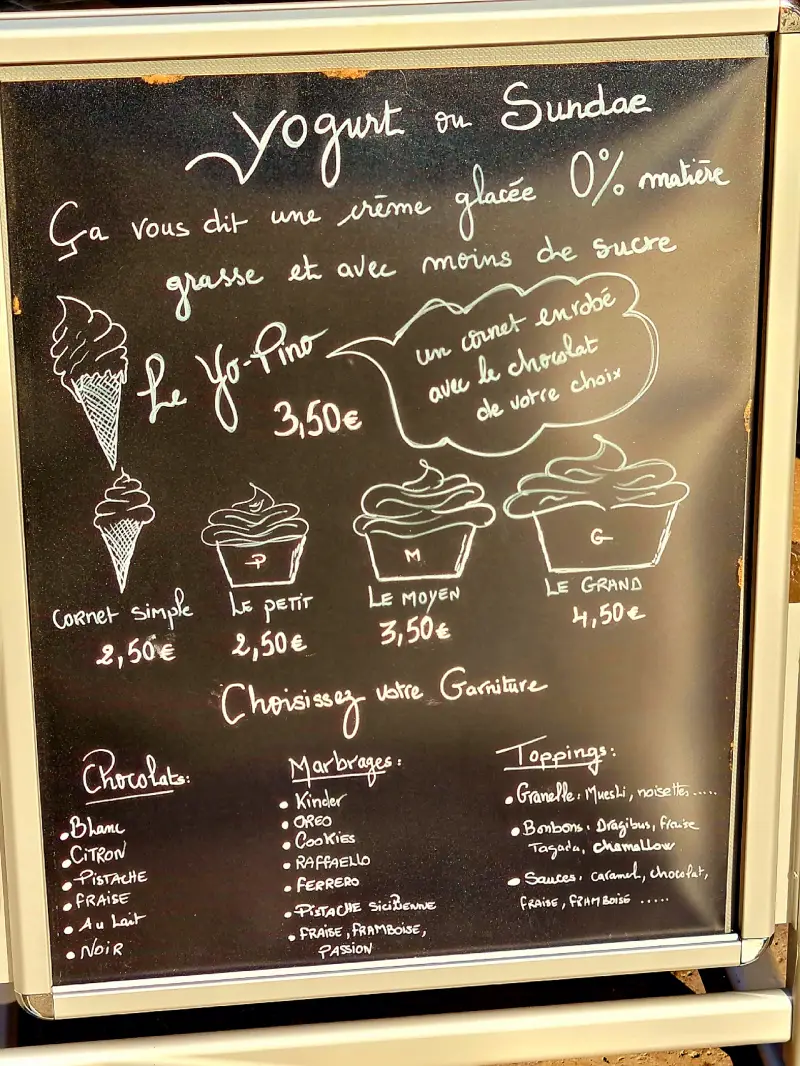 Yogurt ou Sundae
Ça vous dit une crème glacée 0% matière
grasse et avec moins de sucre
Le Yo-Pino
3,50€
un cornet enrobé
avec le chocolat
de votre choix
P
M
G
Cornet simple
2,50€
Le petit
2,50€
Le Moyen
3,50€
Le Grand
4,50€
Choisissez votre Garniture
Chocolats:
• Blanc
• Citron
• Pistache
• Fraise
• Au Lait
• Noir
Marbrages:
• Kinder
• OREO
• Cookies
• RAFFAELLO
• FERRERO
• PISTACHE Sicilienne
• FRAISE, FRAMBOISE,
PASSION
Toppings:
• Granelle: Muesli, noisettes.....
• Bonbons: Dragibus, fraise
Tagada, chamallow
• Sauces: caramel, chocolat,
FRAISE, FRAMBOISE .....